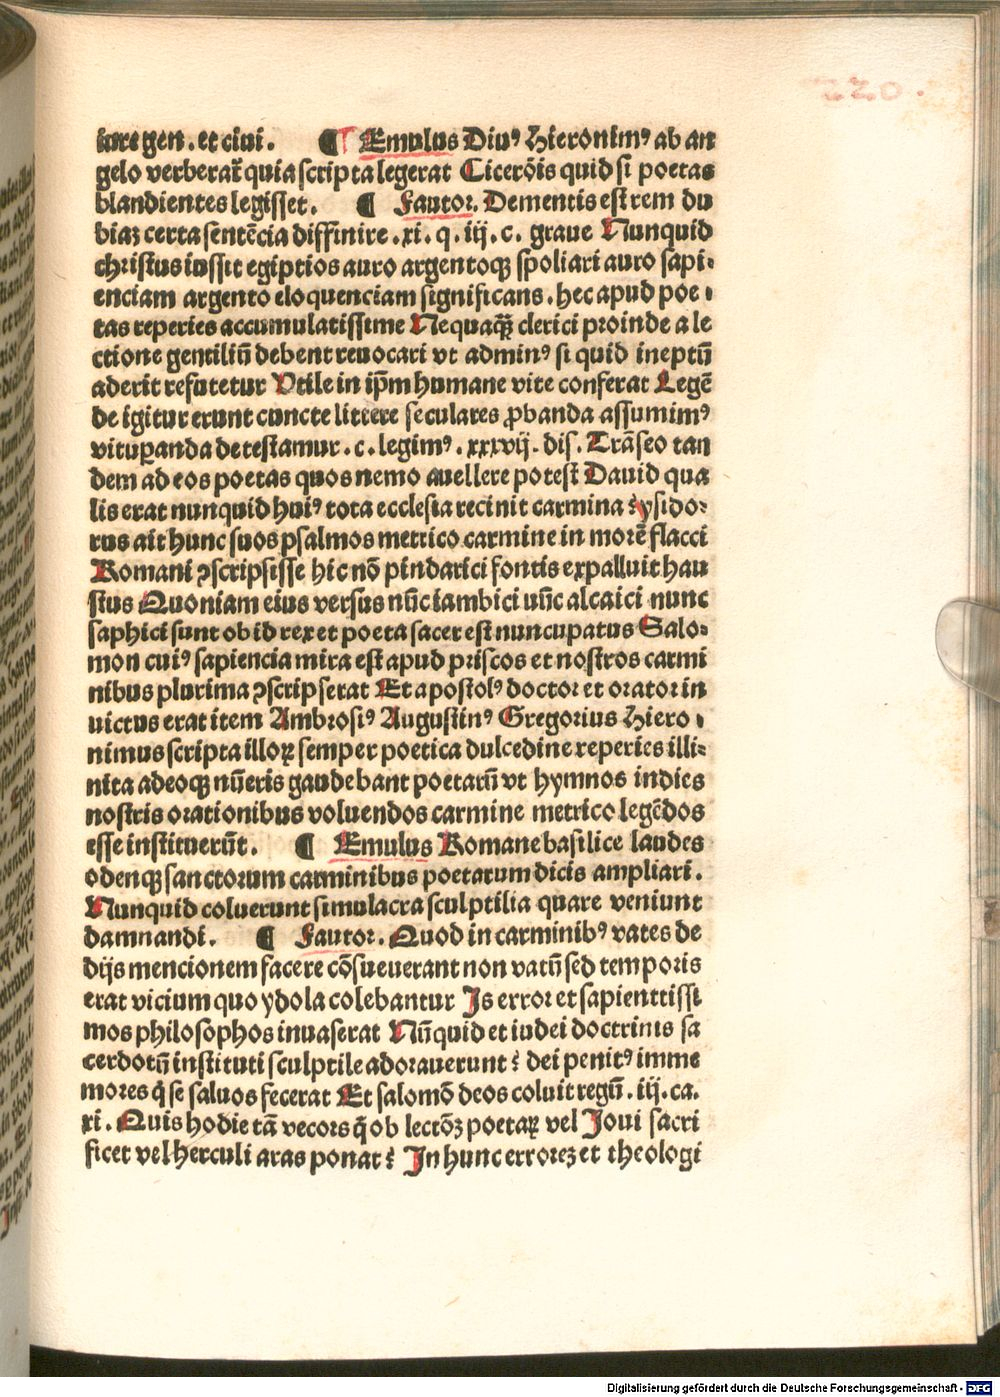 220.
iure gen. et ciui. ¶ Emulus Diuꝰ Hieronimꝰ ab an
gelo verberat̃ quia scripta legerat Cicerõis quid si poetas
blandientes legisset. ¶ Fautor. Dementis est rem du
biaʒ certa sentẽcia diffinire. xi. q. iij. c. graue Nunquid
christus iussit egiptios auro argentoqʒ spoliari auro sapi-
enciam argento eloquenciam significans. hec apud poe-
tas reperies accumulatissime Nequaq̃ʒ clerici proinde a le
ctione gentiliũ debent reuocari vt adminꝰ si quid ineptũ
aderit refutetur Vtile in ip̃m humane vite conferat Legẽ
de igitur erunt cuncte littere seculares ꝓbanda assumimꝰ
vituꝑanda detestamur. c. legimꝰ. xxxvij. dis. Trãseo tan
dem ad eos poetas quos nemo auellere potest Dauid qua
lis erat nunquid huiꝰ tota ecclesia recinit carmina ? ysido-
rus ait hunc suos psalmos metrico carmine in morẽ flacci
Romani ꝯscripsisse hic nõ pindarici fontis expalluit hau
stus Quoniam eius versus nũc iambici nũc alcaici nunc
saphici sunt ob id rex et poeta sacer est nuncupatus Salo-
mon cuiꝰ sapiencia mira est apud priscos et nostros carmi
nibus plurima ꝯscripserat Et apostolꝰ doctor et orator in
uictus erat item Ambrosiꝰ Augustinꝰ Gregorius Hiero-
nimus scripta illoꝝ semper poetica dulcedine reperies illi-
nita adeoqʒ nũeris gaudebant poetarũ vt hymnos indies
nostris orationibus voluendos carmine metrico legẽdos
esse instituerũt. ¶ Emulus Romane basilice laudes
odenqʒ sanctorum carminibus poetarum dicis ampliari.
Nunquid coluerunt simulacra sculptilia quare veniunt
damnandi. ¶ Fautor. Quod in carminibꝰ vates de
dijs mencionem facere cõsueuerant non vatũ sed temporis
erat vicium quo ydola colebantur Is error et sapientissi
mos philosophos inuaserat Nũquid et iudei doctrinis sa
cerdotũ instituti sculptile adorauerunt ? dei penitꝰ imme
mores q̃ se saluos fecerat Et salomõ deos coluit regũ. iij. ca.
xi. Quis hodie tã vecors q̃ ob lectõʒ poetaꝝ vel Joui sacri
ficet vel herculi aras ponat ? In hunc erroreʒ et theologi
Digitalisierung gefördert durch die Deutsche Forschungsgemeinschaft - DFG